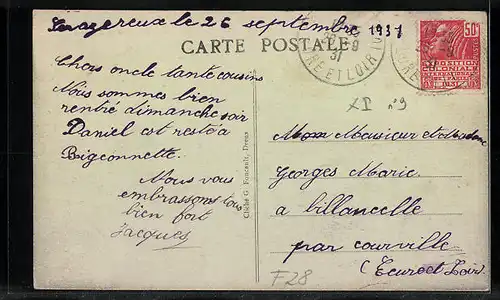 le 26 septembre 1931
CARTE POSTALE
Chers oncle tante cousins
Nous sommes bien
rentré dimanche soir
Daniel est resté à
Bigeonnette.
Nous vous
embrassons tous
bien fort
Jacques
Cliché G. Foucault, Dreux
50c
EXPOSITION
COLONIALE
INTERNATIONALE
PARIS 1931
31
EURE ET LOIR
n°9
Monsieur et Madame
Georges Marie
a billancelle
par courville
(Eure et Loir)
F28